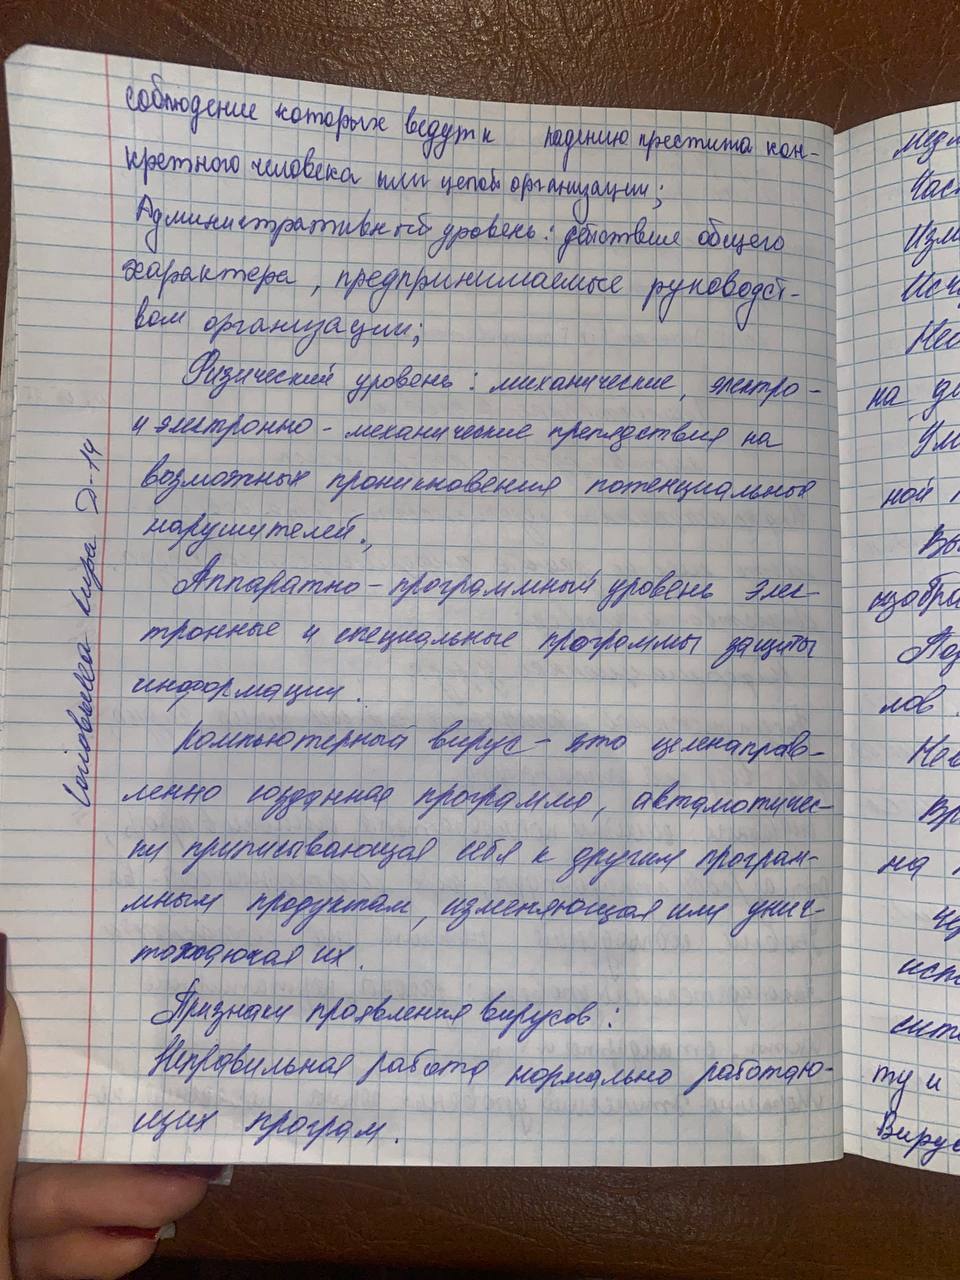 соблюдение которых ведут к падению престижа кон-
кретного человека или целой организации;
Административный уровень: действия общего
характера, предпринимаемые руководст-
вом организации;
Физический уровень: механические, электро-
и электронно-механические препядствия на
возможных проникновения потенциальных
нарушителей.,
Аппаратно-программный уровень элек-
тронные и специальные программы защиты
информации.
Компьютерный вирус - это целенаправ-
ленно созданная программа, автаматичес-
ки приписывающая себя к другим програм-
мным продуктам, изменяющая или унич-
тожающая их.
Признаки проявления вирусов:
Неправильная работа нормально работаю-
щих програм.
Кира Э-14
Част
Изм
Исч
на
Ум
ной
Вы
изобра
лов.
на
испо
ту и
Вирус